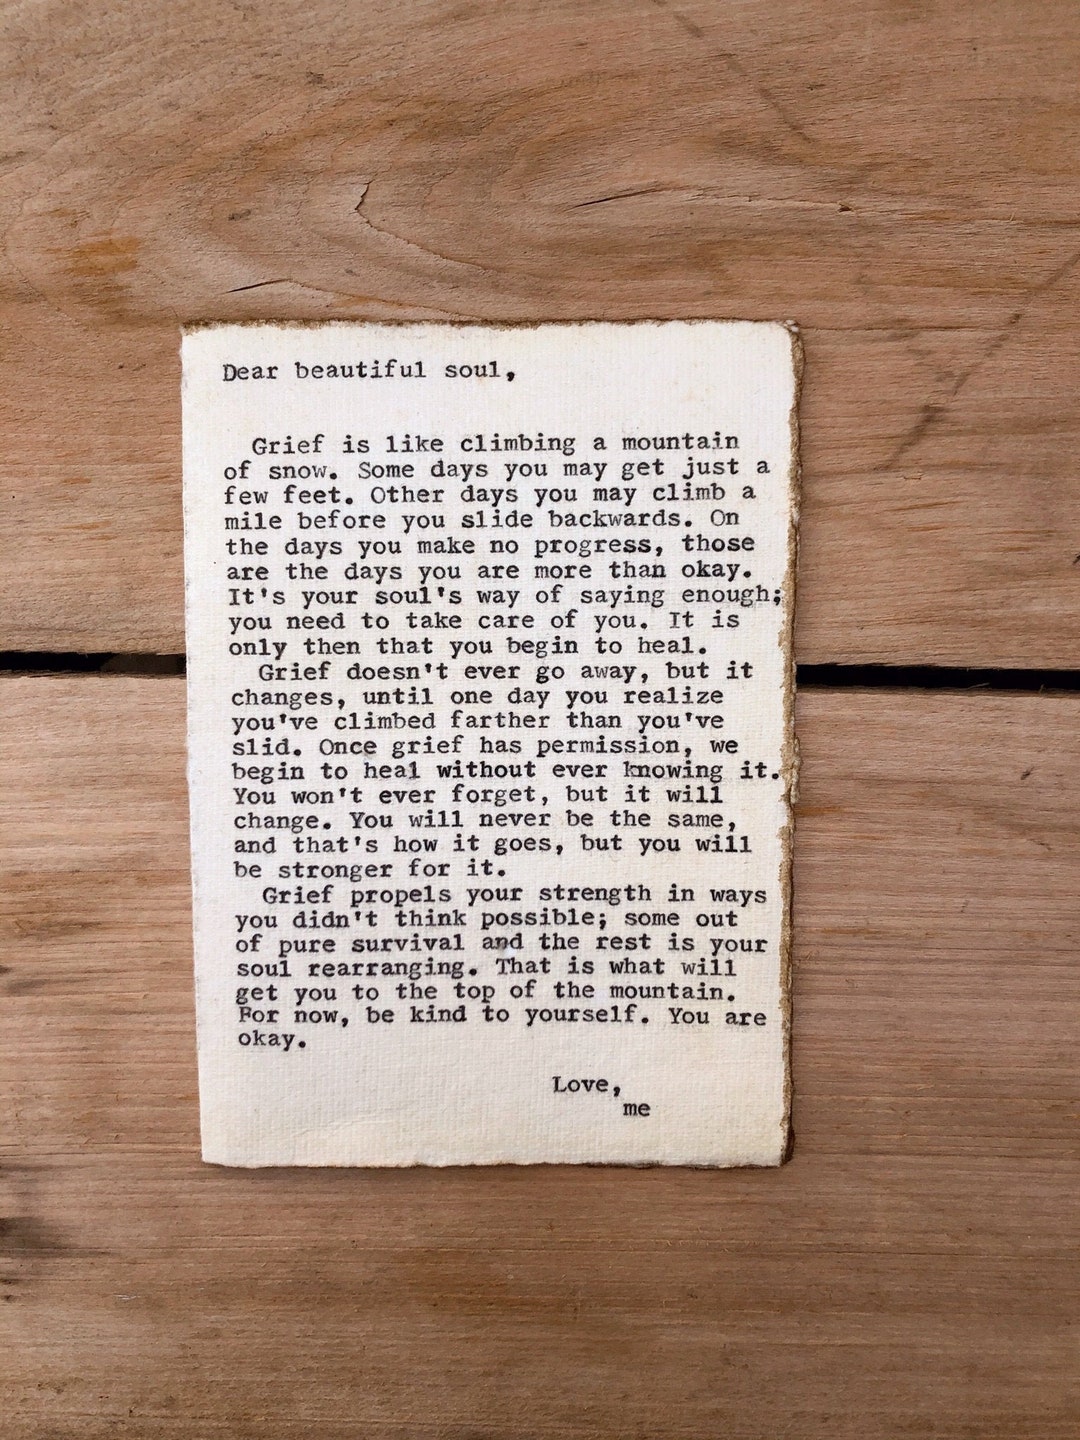 Dear beautiful soul,
Grief is like climbing a mountain
of snow. Some days you may get just a
few feet. Other days you may climb a
mile before you slide backwards. On
the days you make no progress, those
are the days you are more than okay.
It's your soul's way of saying enough;
you need to take care of you. It is
only then that you begin to heal.
Grief doesn't ever go away, but it
changes, until one day you realize
you've climbed farther than you've
slid. Once grief has permission, we
begin to heal without ever knowing it.
You won't ever forget, but it will
change. You will never be the same,
and that's how it goes, but you will
be stronger for it.
Grief propels your strength in ways
you didn't think possible; some out
of pure survival and the rest is your
soul rearranging. That is what will
get you to the top of the mountain.
For now, be kind to yourself. You are
okay.
Love,
me